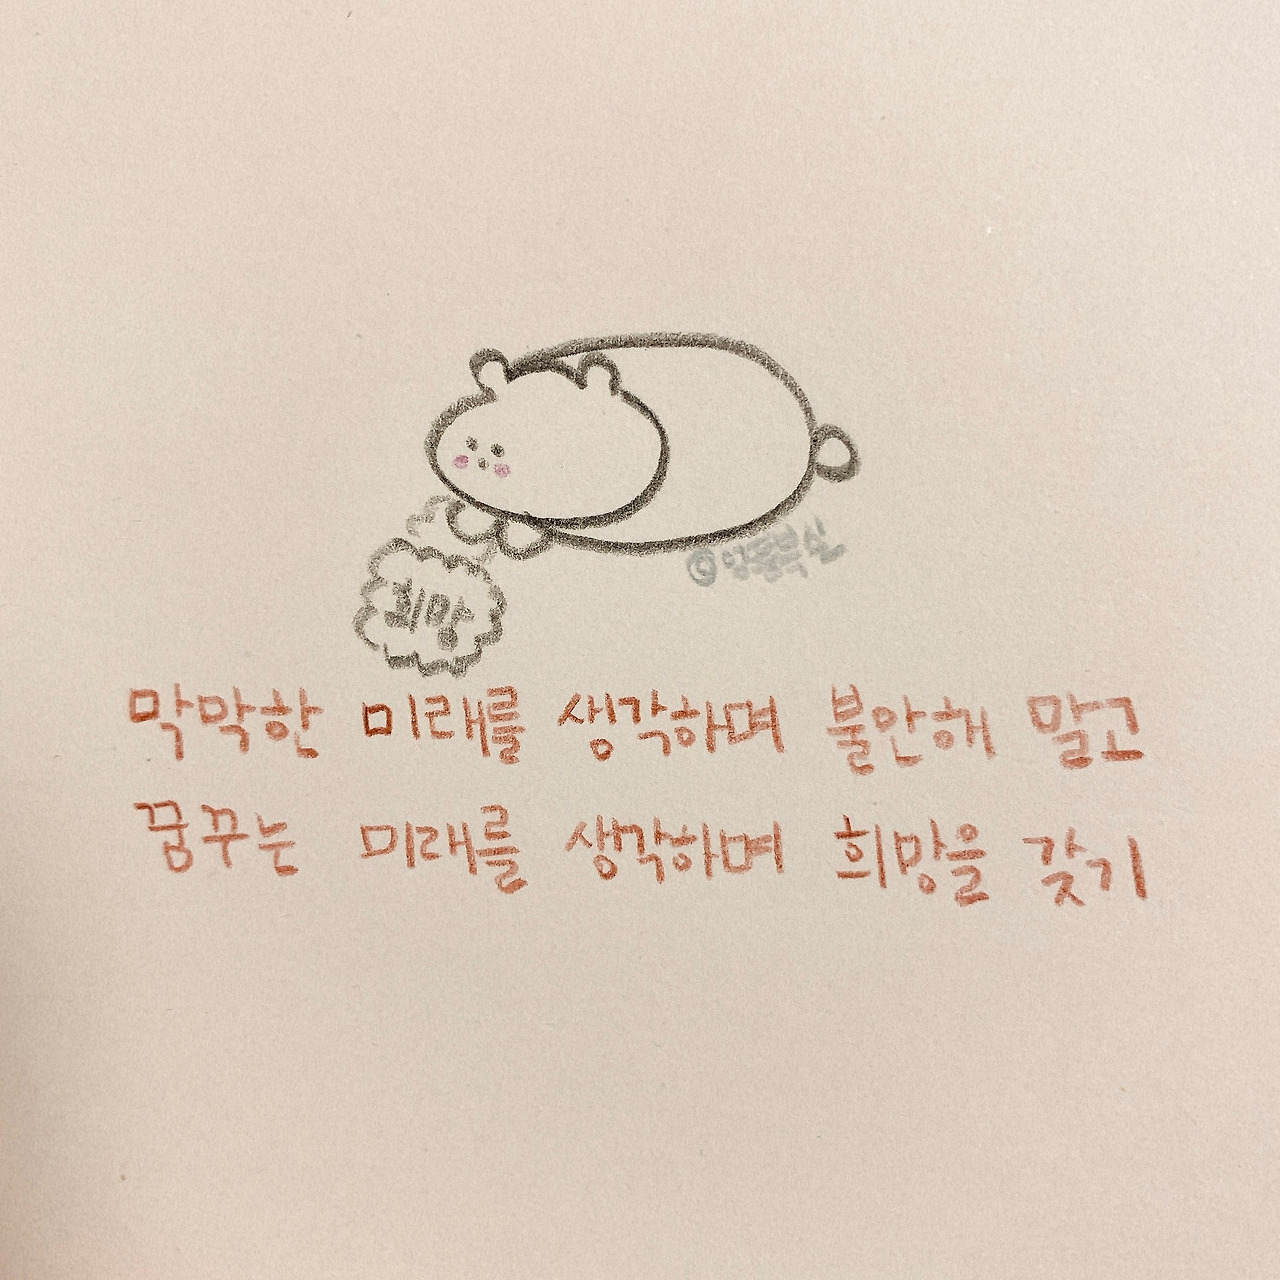 희망
막막한 미래를 생각하며 불안해 말고
꿈꾸는 미래를 생각하며 희망을 갖기